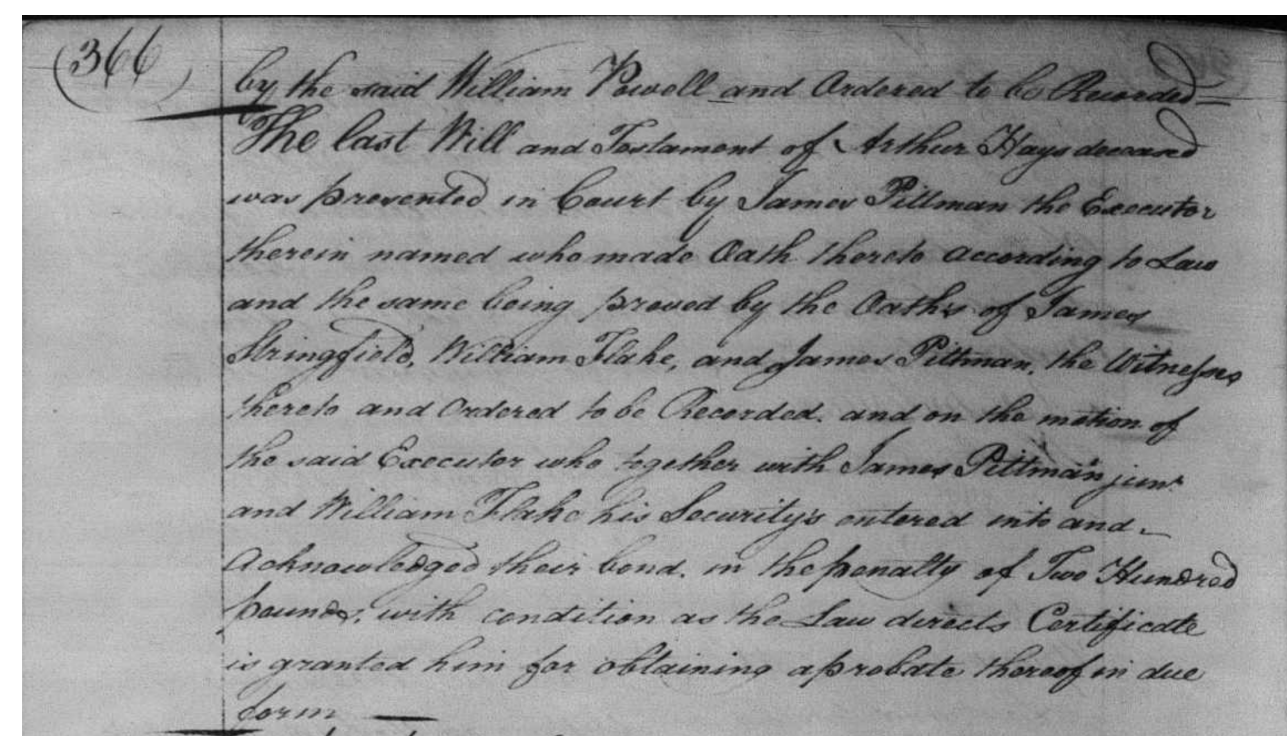 (366)
by the said William Powell and Ordered to be Recorded
The last Will and Testament of Arthur Hays deceased
was presented in Court by James Pittman the Executor
therein named who made Oath thereto according to Law
and the same being proved by the Oath's of James
Stringfield, William Flake, and James Pittman, the Witnesses
thereto and Ordered to be Recorded. and on the motion of
the said Executor who together with James Pittman junr
and William Flake his Security's entered into and
Acknowledged their bond. in the penalty of Two Hundred
pounds, with condition as the Law directs Certificate
is granted him for obtaining a probate thereof in due
form